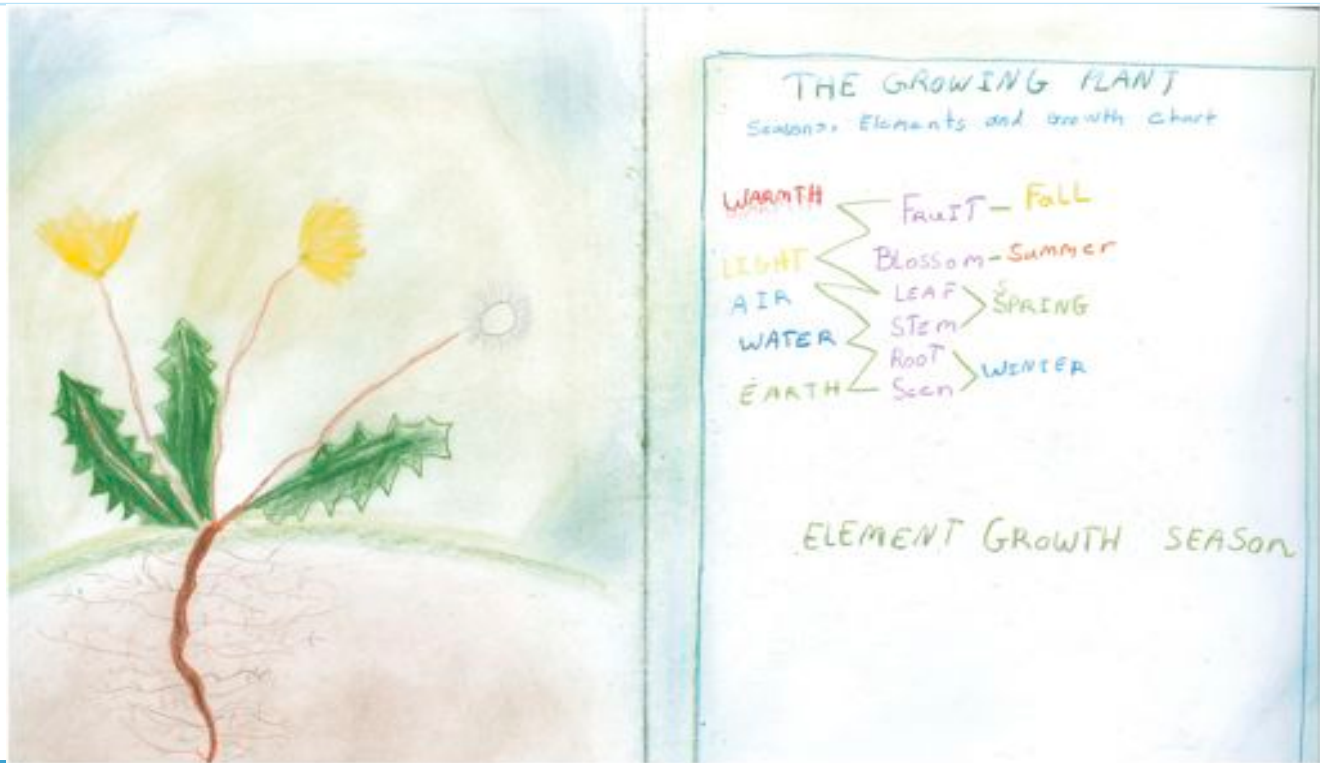 THE GROWING PLANT
Seasons, Elements and Growth Chart
WARMTH FRUIT - FALL
LIGHT BLOSSOM - Summer
AIR LEAF SPRING
WATER STEM
ROOT WINTER
EARTH Seen
ELEMENT GROWTH SEASON